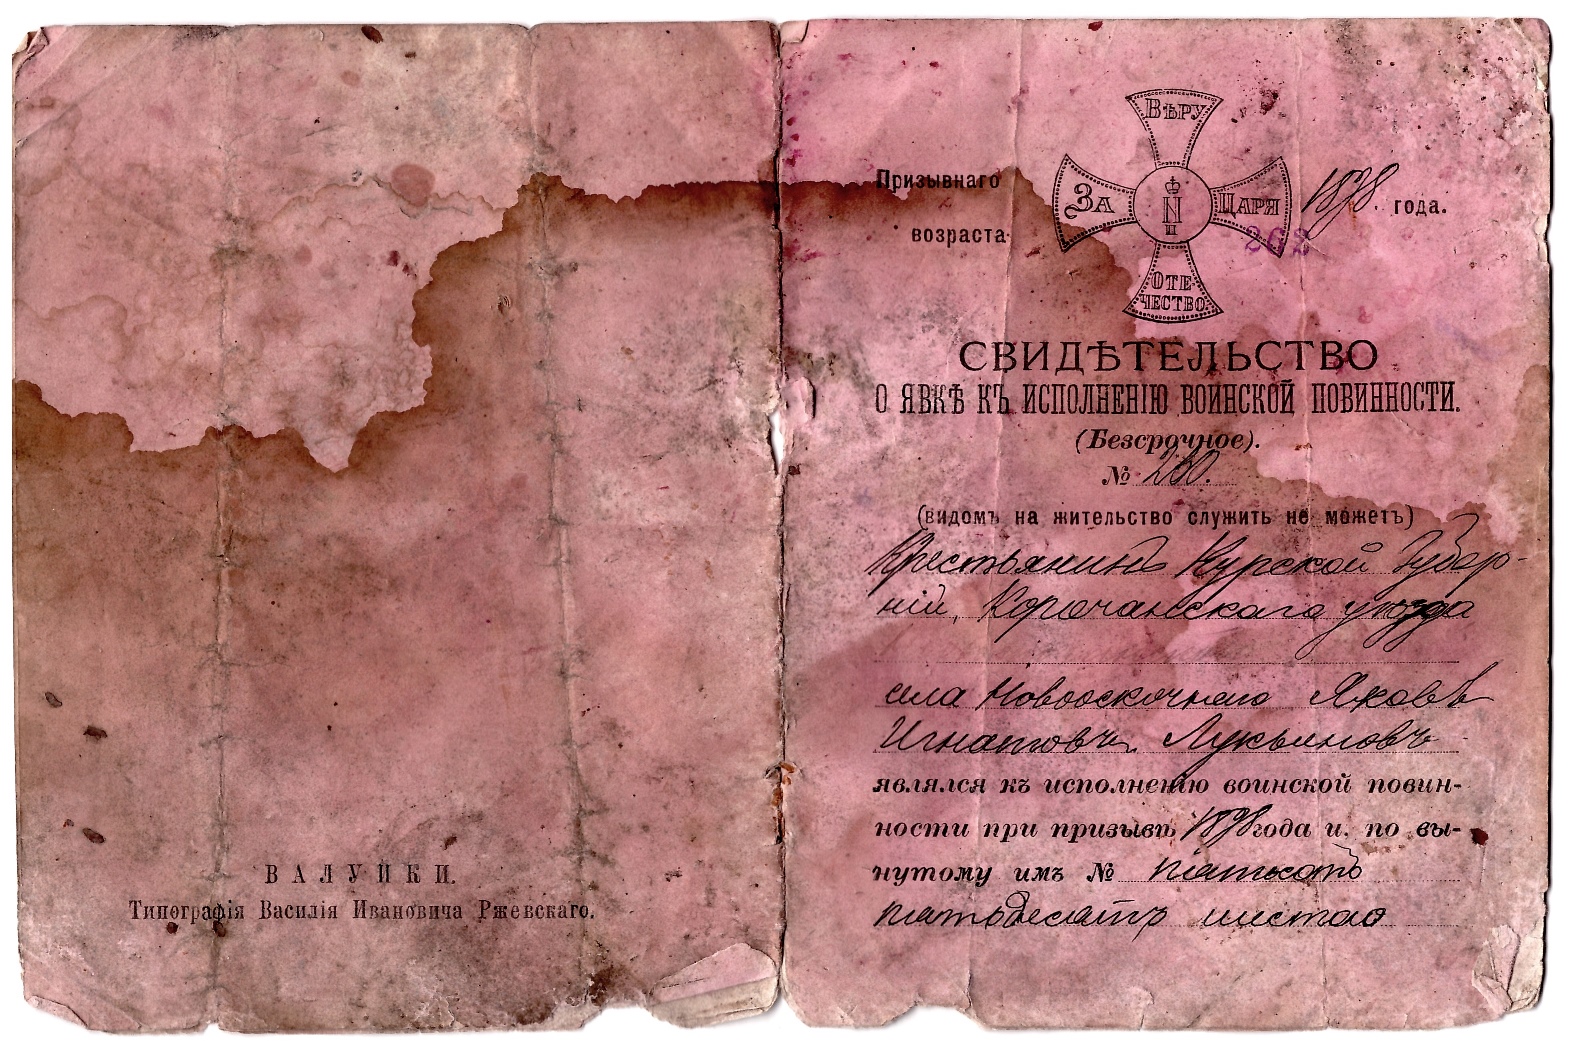 ВАЛУЙКИ.
Типографія Василія Ивановича Ржевскаго.
ВѢРУ
Призывнаго
возраста
ЗА
N
II
ЦАРЯ
1898 года.
ОТЕ-
ЧЕСТВО
СВИДѢТЕЛЬСТВО
О ЯВКѢ КЪ ИСПОЛНЕНІЮ ВОИНСКОЙ ПОВИННОСТИ.
(Безсрочное).
№ 260.
(видомъ на жительство служить не можетъ)
Крестьянинъ Курской Губер-
ніи, Корочанскаго уѣзда
села Яковъ
Игнатовъ Лукьяновъ
являлся къ исполненію воинской повин-
ности при призывѣ 1898 года и, по вы-
нутому имъ № пятьсотъ
пятьдесятъ шестао